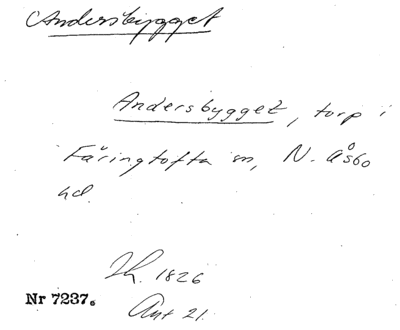 Andersbygget
Andersbygget, torp i
Färingtofta sn, N. Åsbo
hd.
Th. 1826
Nr 7237.
Ant 21.